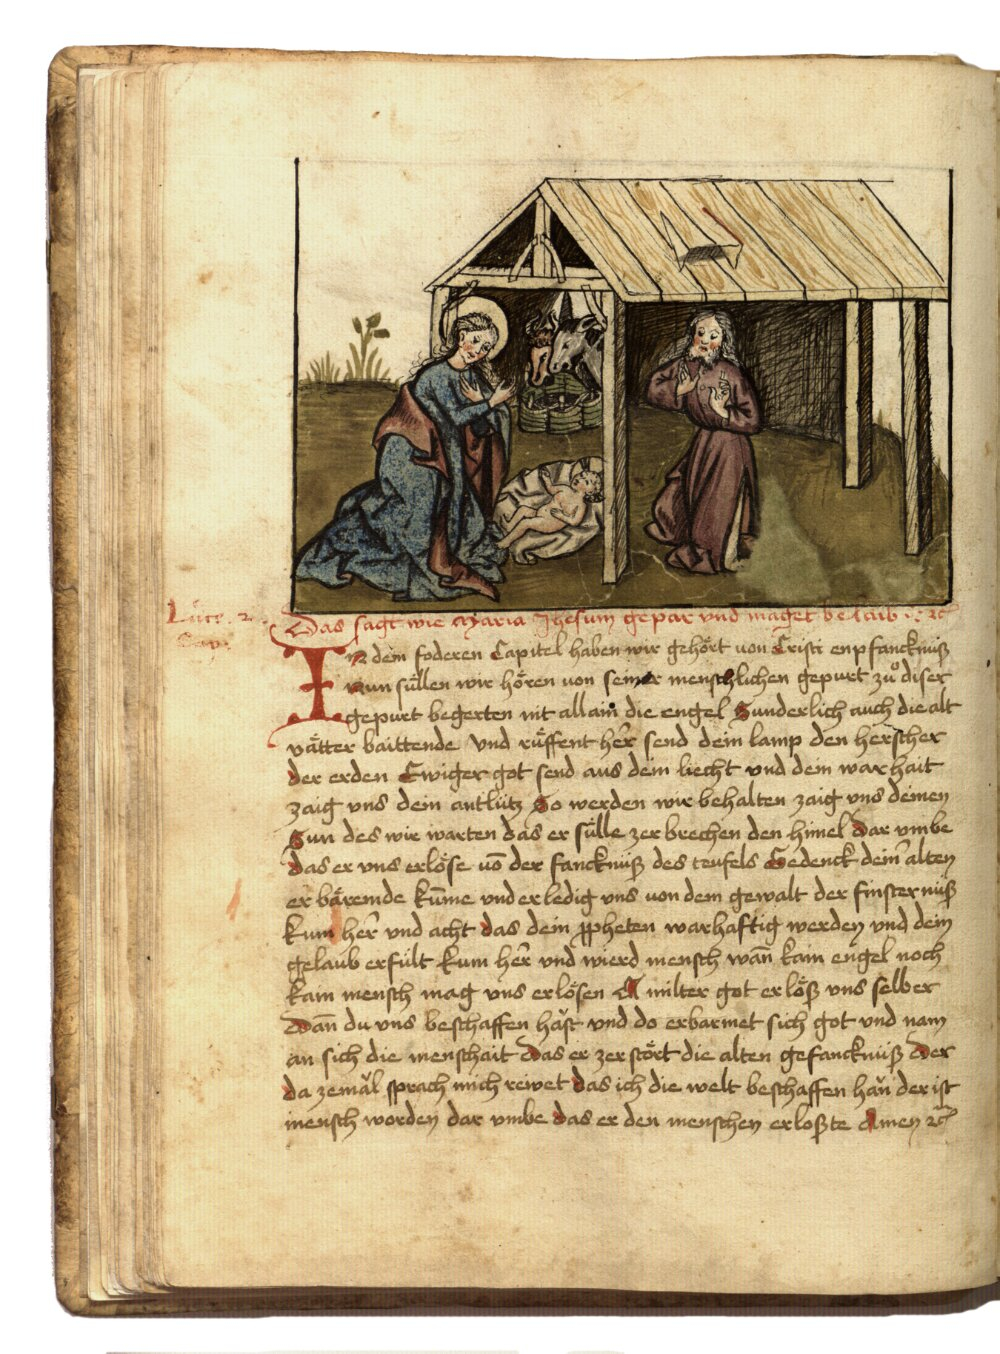 Luce. 2.
Cap.
Das sagt wie Maria Jhesum gepar vnd maget belaib ⁊c
In dem foderen Capitel haben wir gehört von Cristi enpfancknuß
nun süllen wir hören von seiner menschlichen gepurt zuͦ diser
gepurt begerten nit allain die engel Sunderlich auch die alt
vätter baittende vnd rüffent her̄ send dein lamp den herscher
der erden Ewiger got send aus dein liecht vnd dein warhait
zaig vns dein antlütz So werden wir behalten zaig vns deinen
Sun des wir warten das er sülle zerbrechen den himel dar vmbe
das er vns erlöse vō der fancknüß des teufels Gedenck dein̄ alten
erbäremde kūme vnd erledig vns von dem gewalt der finsternüß
kum her̄ vnd acht das dein ppheten warhaftig werden vnd dein
gelaub erfült kum her̄ vnd wierd mensch wan̄ kain engel noch
kain mensch mag vns erlösen A milter got erlöß vns selber
Dan̄ du vns beschaffen häst vnd do erbarmet sich got vnd nam
an sich die menschait das er zerstört die alten gefancknüß Der
da zemäl sprach mich reẅet das ich die welt beschaffen hän der ist
mensch worden dar vmbe das er den menschen erloßte Amen ⁊c